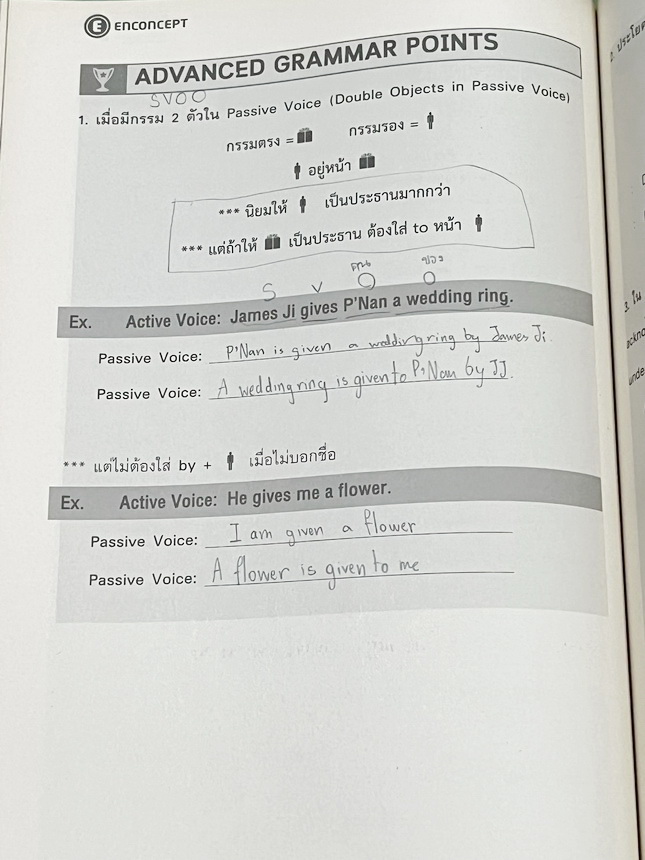 ENCONCEPT
ADVANCED GRAMMAR POINTS
SVOO
1. เมื่อมีกรรม 2 ตัวใน Passive Voice (Double Objects in Passive Voice)
กรรมตรง = กรรมรอง =
อยู่หน้า
*** นิยมให้ เป็นประธานมากกว่า
*** แต่ถ้าให้ เป็นประธาน ต้องใส่ to หน้า
คน ของ
S V O O
Ex. Active Voice: James Ji gives P'Nan a wedding ring.
Passive Voice: P'Nan is given a wedding ring by James Ji.
Passive Voice: A wedding ring is given to P'Nan by JJ.
*** แต่ไม่ต้องใส่ by + เมื่อไม่บอกชื่อ
Ex. Active Voice: He gives me a flower.
Passive Voice: I am given a flower
Passive Voice: A flower is given to me
2. ประโยค
3. ใน
ackno
unde